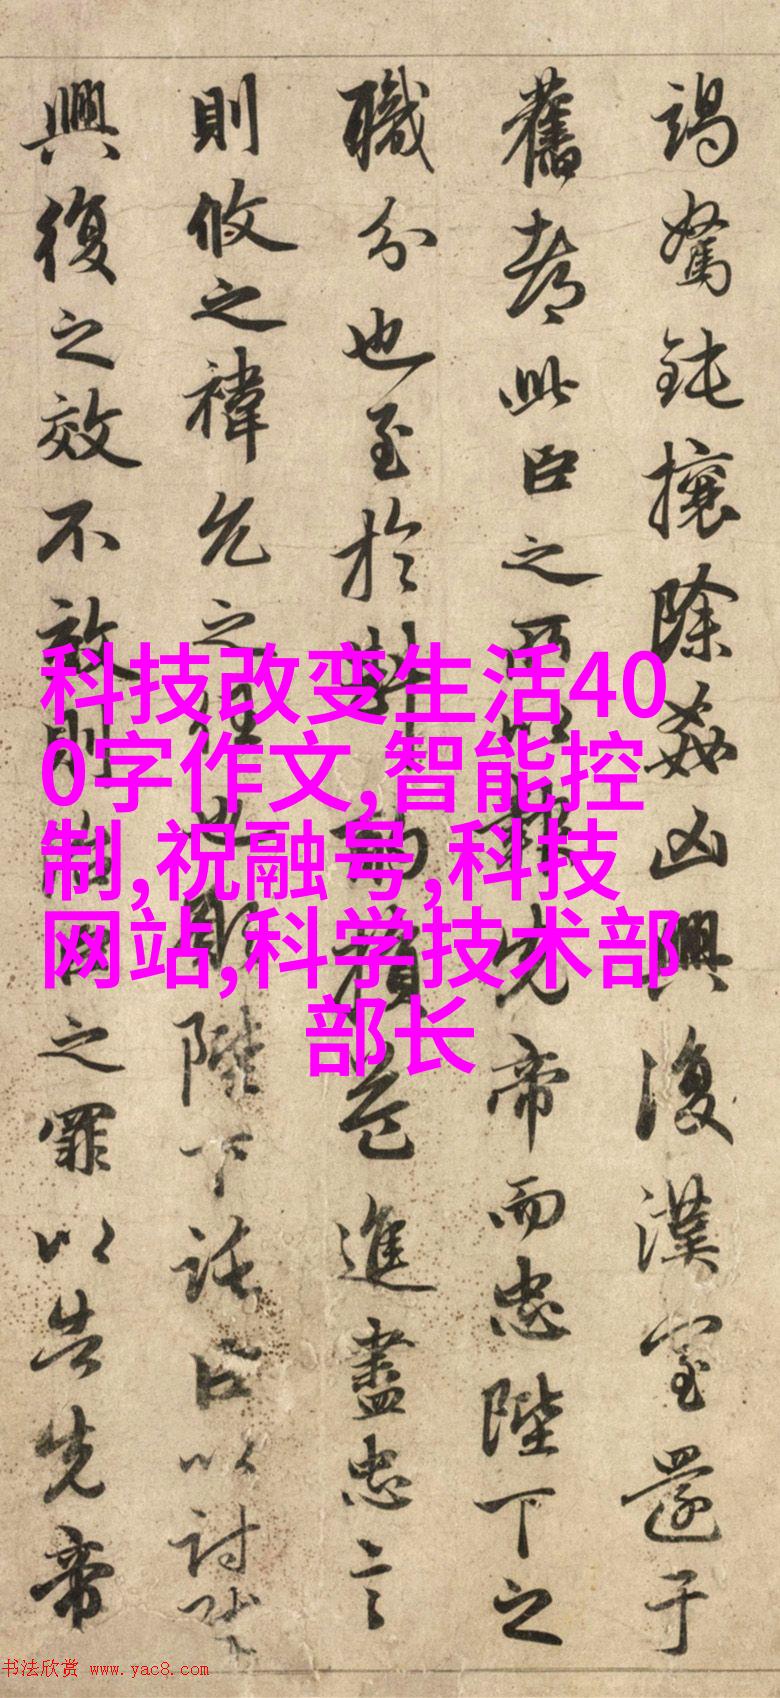 竭駑鈍攘除姦凶興復漢室還于
舊都此臣之所以報先帝而忠陛下之
職分也至於斟酌損益進盡忠言
則攸之禕允之任也願陛下託臣以討賊
興復之效不效則治臣之罪以告先帝
科技改变生活40
0字作文,智能控
制,祝融号,科技
网站,科学技术部
部长
书法欣赏 www.yac8.com